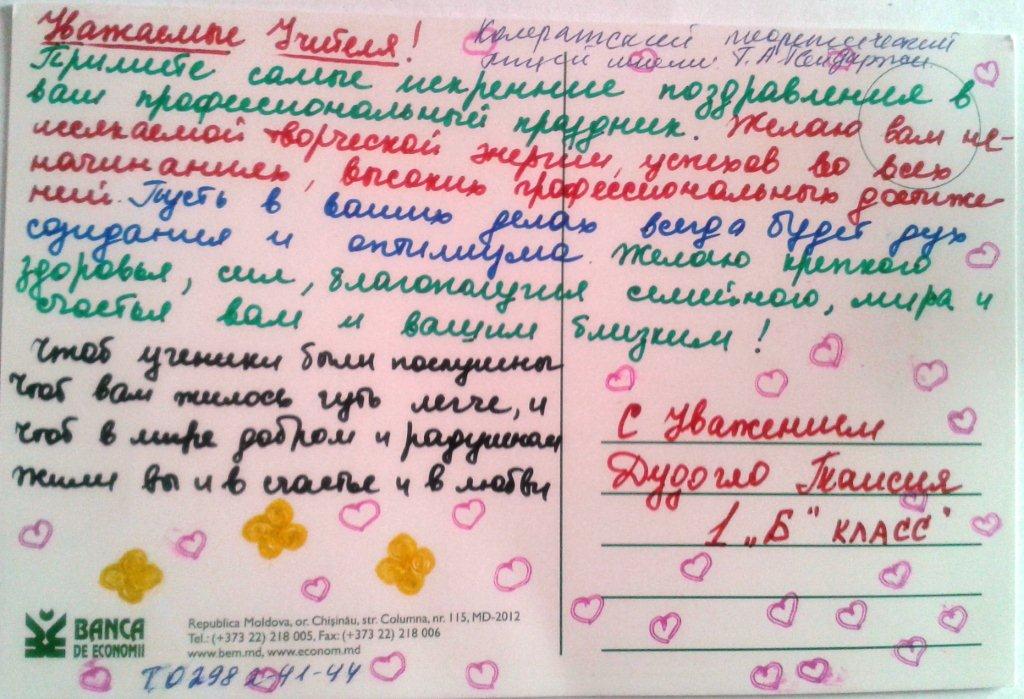 Уважаемые Учителя!
Комратский теоретический
лицей имени Г. А. Гайдаржи
Примите самые искренние поздравления в
ваш профессиональный праздник. Желаю вам не-
иссякаемой творческой энергии, успехов во всех
начинаниях, высоких профессиональных достиже-
ний. Пусть в ваших делах всегда будет дух
созидания и оптимизма. Желаю крепкого
здоровья, сил, благополучия семейного, мира и
счастья вам и вашим близким!
Чтоб ученики были послушны
Чтоб вам жилось чуть легче, и
Чтоб в мире добром и радушном
Жили вы и в счастье и в любви
С Уважением
Дудогло Таисия
1 „Б" класс
BANCA
DE ECONOMII
Republica Moldova, or. Chişinău, str. Columna, nr. 115, MD-2012
Tel.: (+373 22) 218 005, Fax: (+373 22) 218 006
www.bem.md, www.econom.md